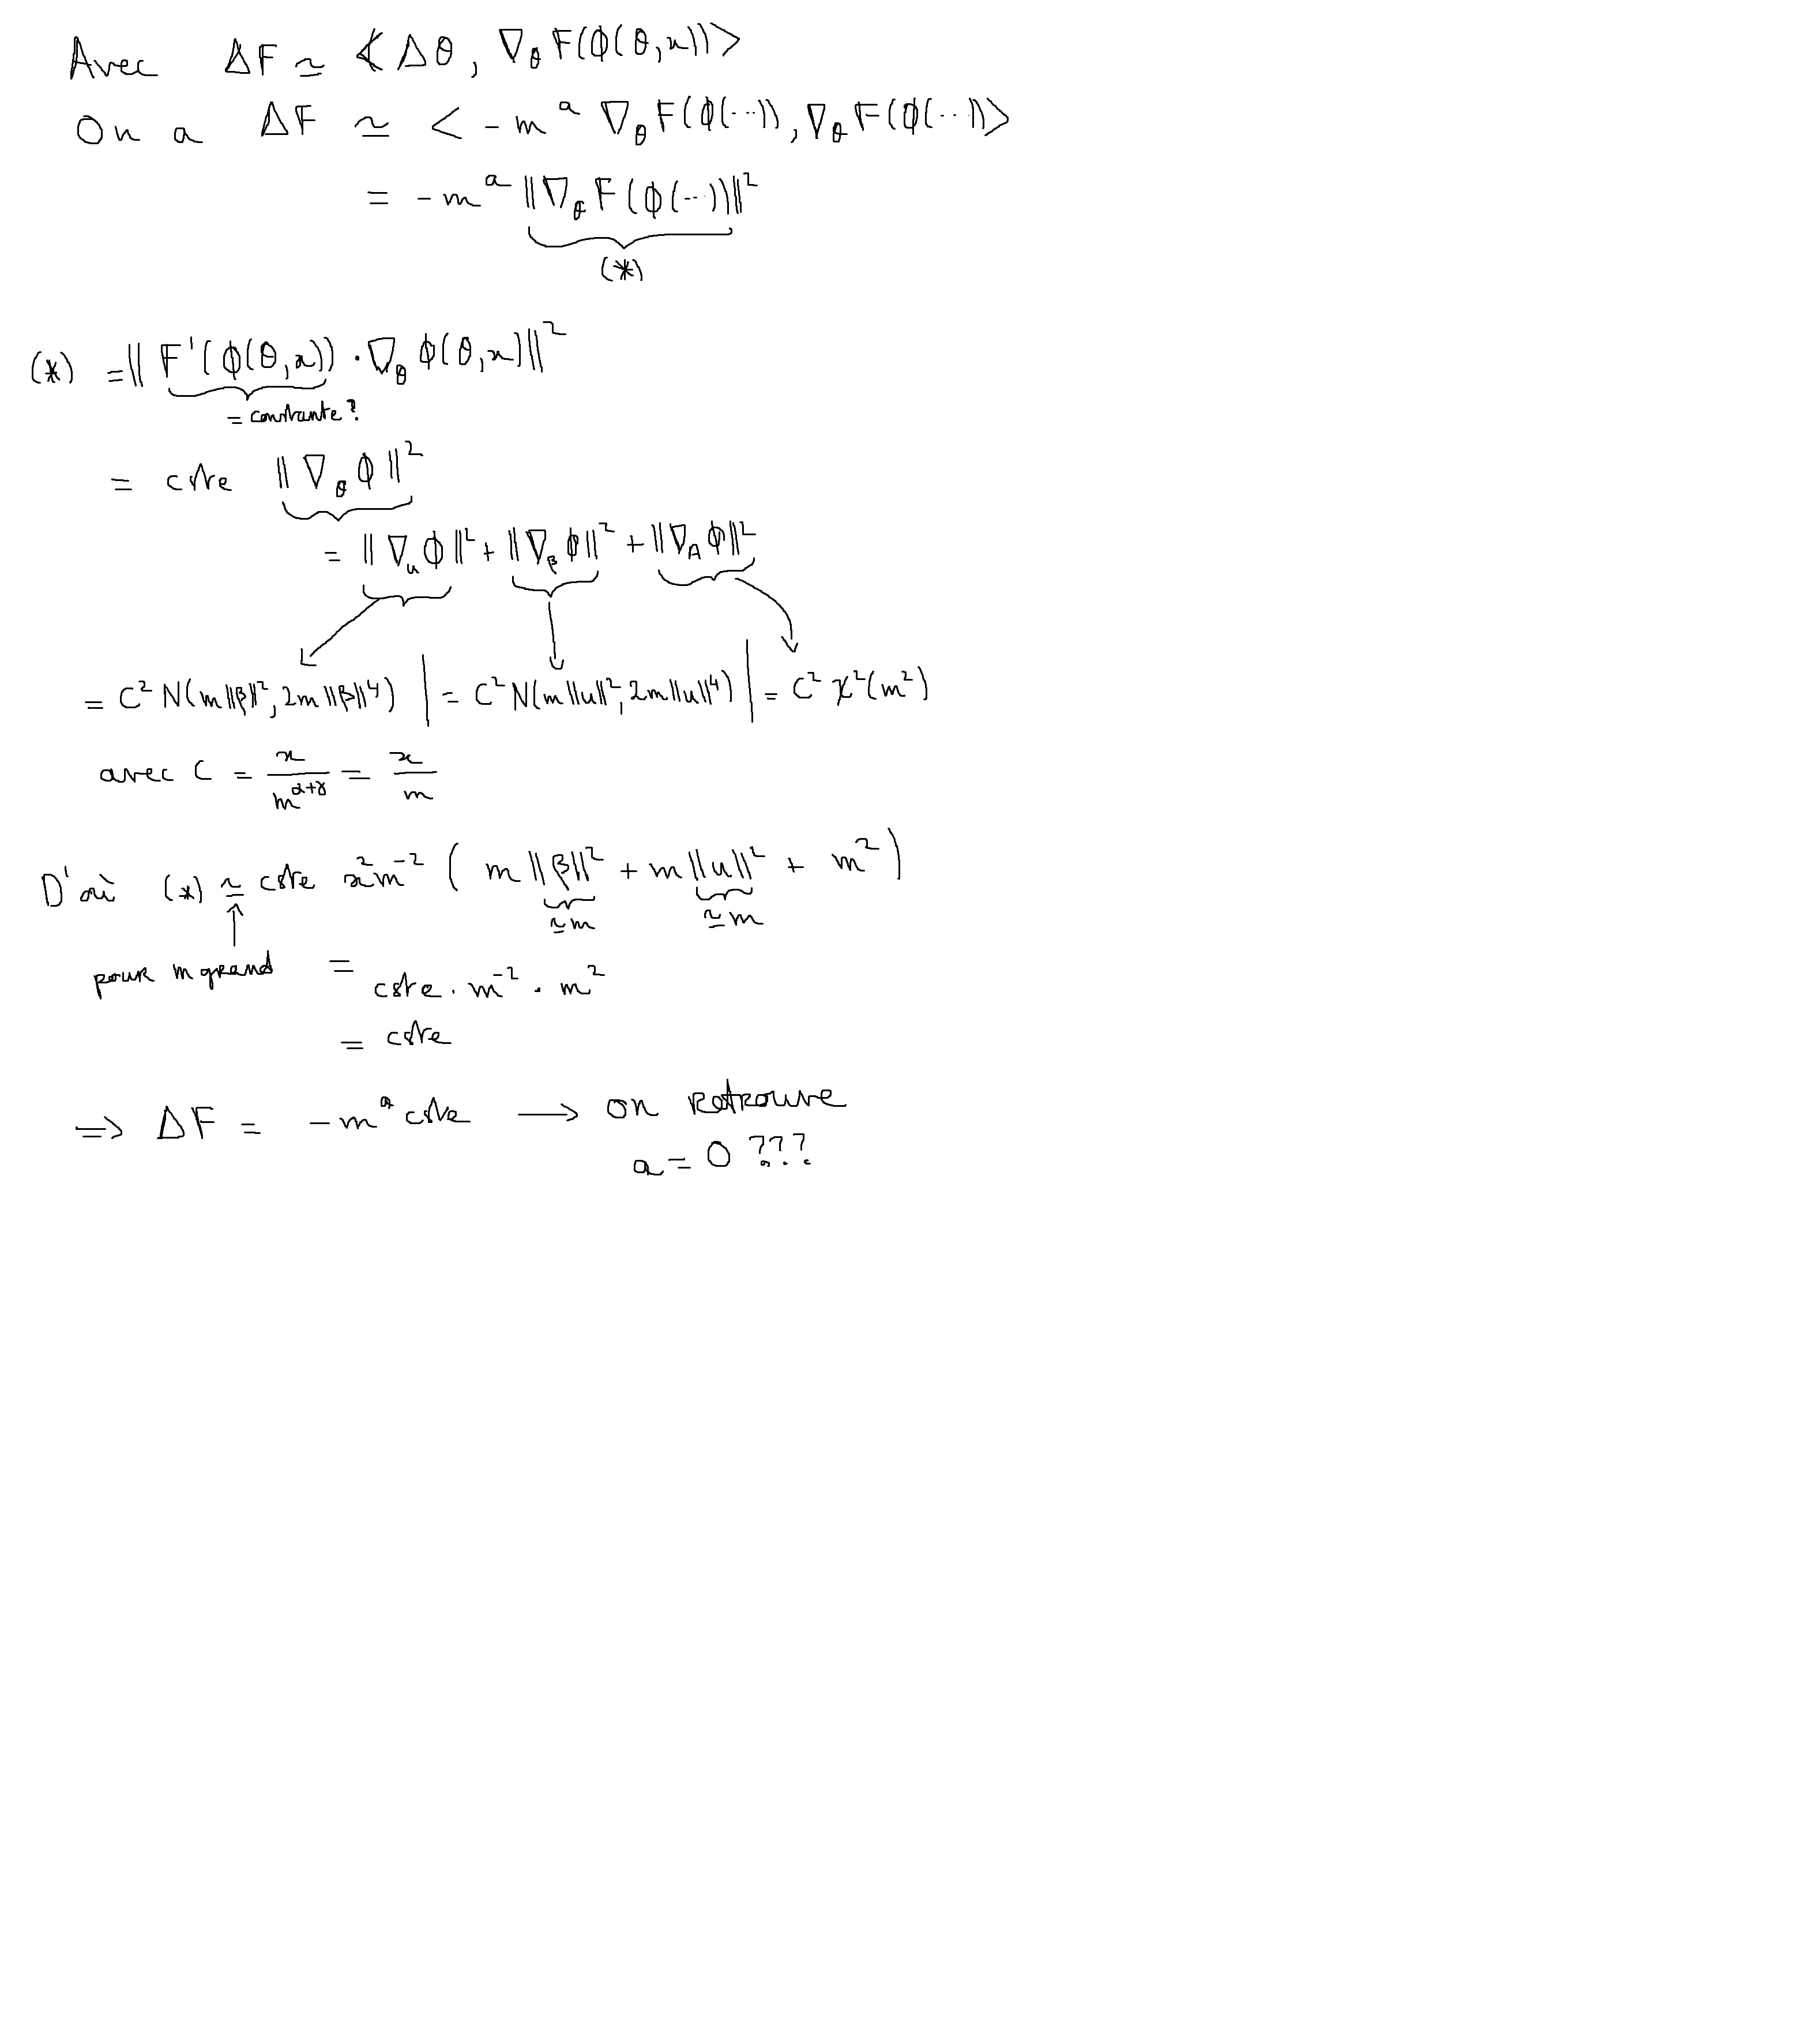 Avec ΔF ≃ <Δθ, ∇_θ F(ϕ(θ,x))>
On a ΔF ≃ < -m^a ∇_θ F(ϕ(...)), ∇_θ F(ϕ(...))>
= -m^a ||∇_θ F(ϕ(...))||²
(*)
(*) = || F'(ϕ(θ,x)) · ∇_θ ϕ(θ,x)||²
= constante?
= cste ||∇_θ ϕ||²
= ||∇_u ϕ||² + ||∇_β ϕ||² + ||∇_A ϕ||²
= C² N(m||β||², 2m||β||⁴) | = C² N(m||u||², 2m||u||⁴) | = C² χ²(m²)
avec C = x/m^{α+γ} = x/m
D'où (*) ≃ cste x² m^{-2} ( m||β||² + m||u||² + m² )
≃m ≃m
pour m grand
= cste · m^{-2} · m²
= cste
⇒ ΔF = -m^a cste → on retrouve
a = 0 ???